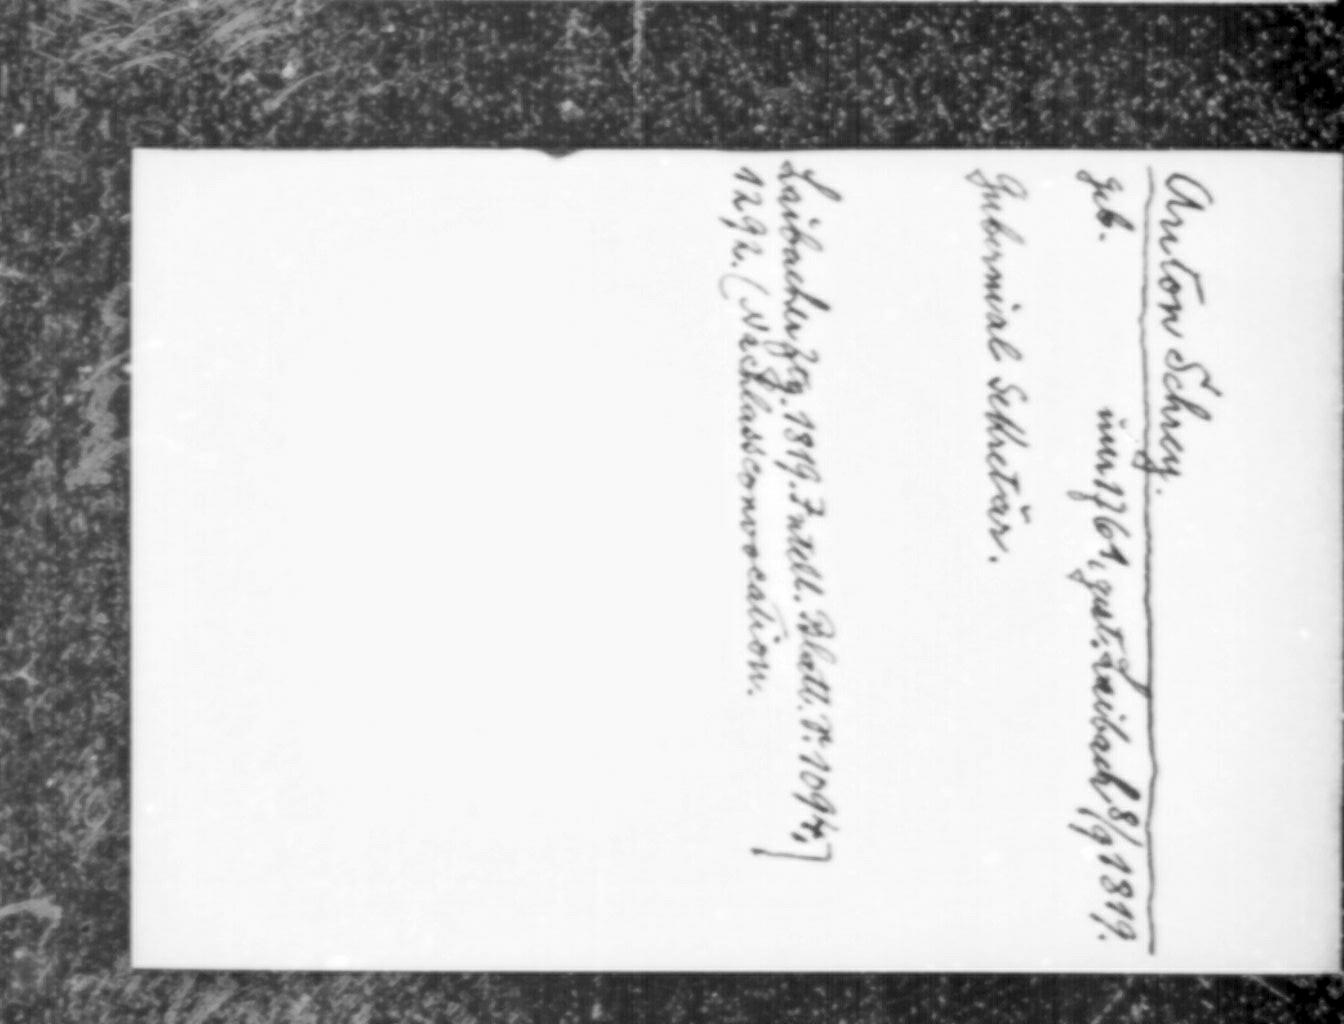 Anton Schrey.
geb. um 1761, gest. Laibach 8/9 1819.
Gubernial Sekretär.
Laibacher Ztg. 1819. Intell. Blatt. N: 1094,
1292. (Nachlassconvocation.]